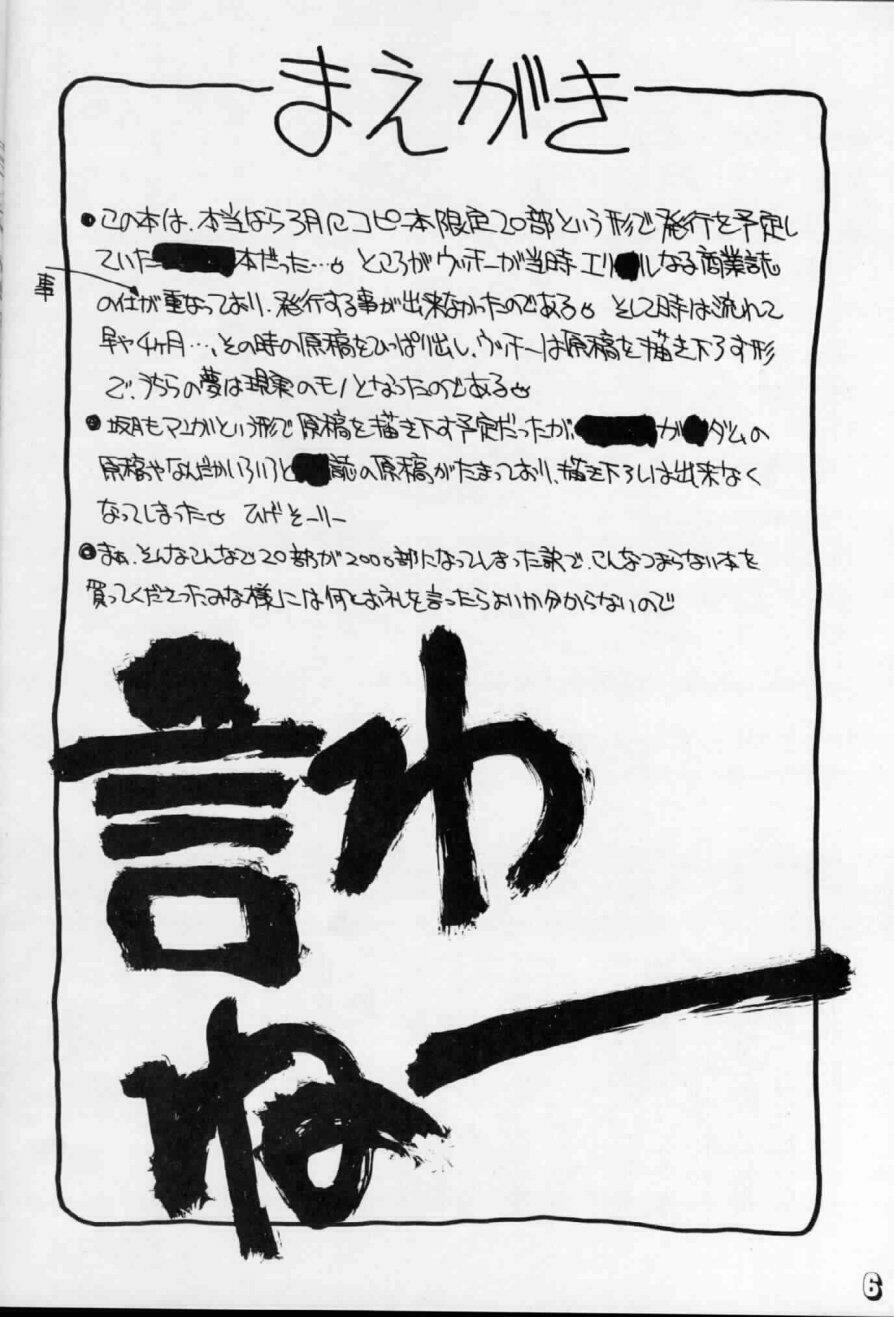 まえがき
●この本は、本当なら3月にコピー本限定20部という形で発行を予定し
ていた 本だった…。ところがウッホーが当時エリ ルなる商業誌
の仕事が重なっており、発行する事が出来なかったのである。そして時は流れて
早や4ヶ月…、その時の原稿をひっぱり出し、ウッホーは原稿を描き下ろす形
で、うちらの夢は現実のモノとなったのである。
●坂月もマンガという形で原稿を描き下す予定だったが、 が ダムの
原稿やなんだかいろいろと 誌の原稿がたまっており、描き下ろしは出来なく
なってしまった。ひげそーりー
●まぁ、そんなこんなで20部が2000部になってしまった訳で、こんなつまらない本を
「買ってくださったみな様」には何とお礼を言ったらよいか分からないので
言わ
ねー
6